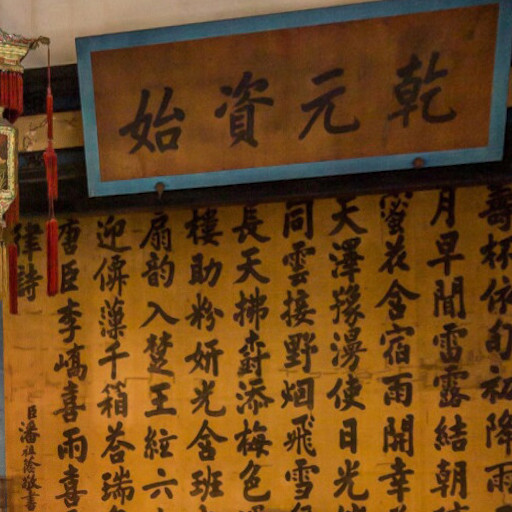 乾元資始
壽杯依旬初降雨
月早聞雷露結朝
蜜花含宿雨開幸
天澤豫漫使日光
同雲接野烟飛雪
長天拂樹添梅色
樓助粉妍光含班
扇韵入楚王絃六
迎倂藻千箱荅瑞
唐臣李嶠喜雨喜
律詩
臣潘祖蔭敬書